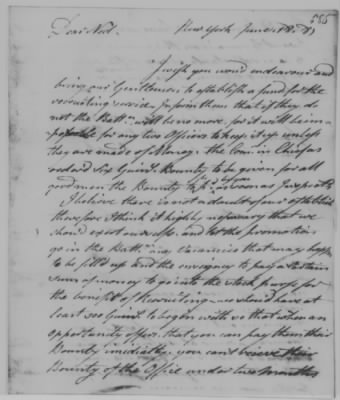 585
Dear Ned. New York June 18. 81
I wish you wou'd endeavour and
bring our Gentlemen to establish a fund for the
recruiting service Inform them that if they do
not the Batt.n will be no more, for it will be im=
possible for any two Officers to keep it up unless
they are made of Money. the Com: in Chief has
order'd Six Guin.s Bounty to be given for all
good men the Bounty to be as soon as Inspected
I believe there is not a doubt of our establish
therefore I think it highly necessary that we
should exert ourselves. and let the promotions
go in the Batt.n any Vacancies that may happ
to be fill'd up and the ensigncy to pay a Certain
sum of money to go into the stock purse for
the benefit of Recruiting - we should have at
least 300 Guin.s to begin with so that when an
opportunity offers, that you can pay them their
Bounty imediatly. you can't receive their
Bounty of the Office under two months